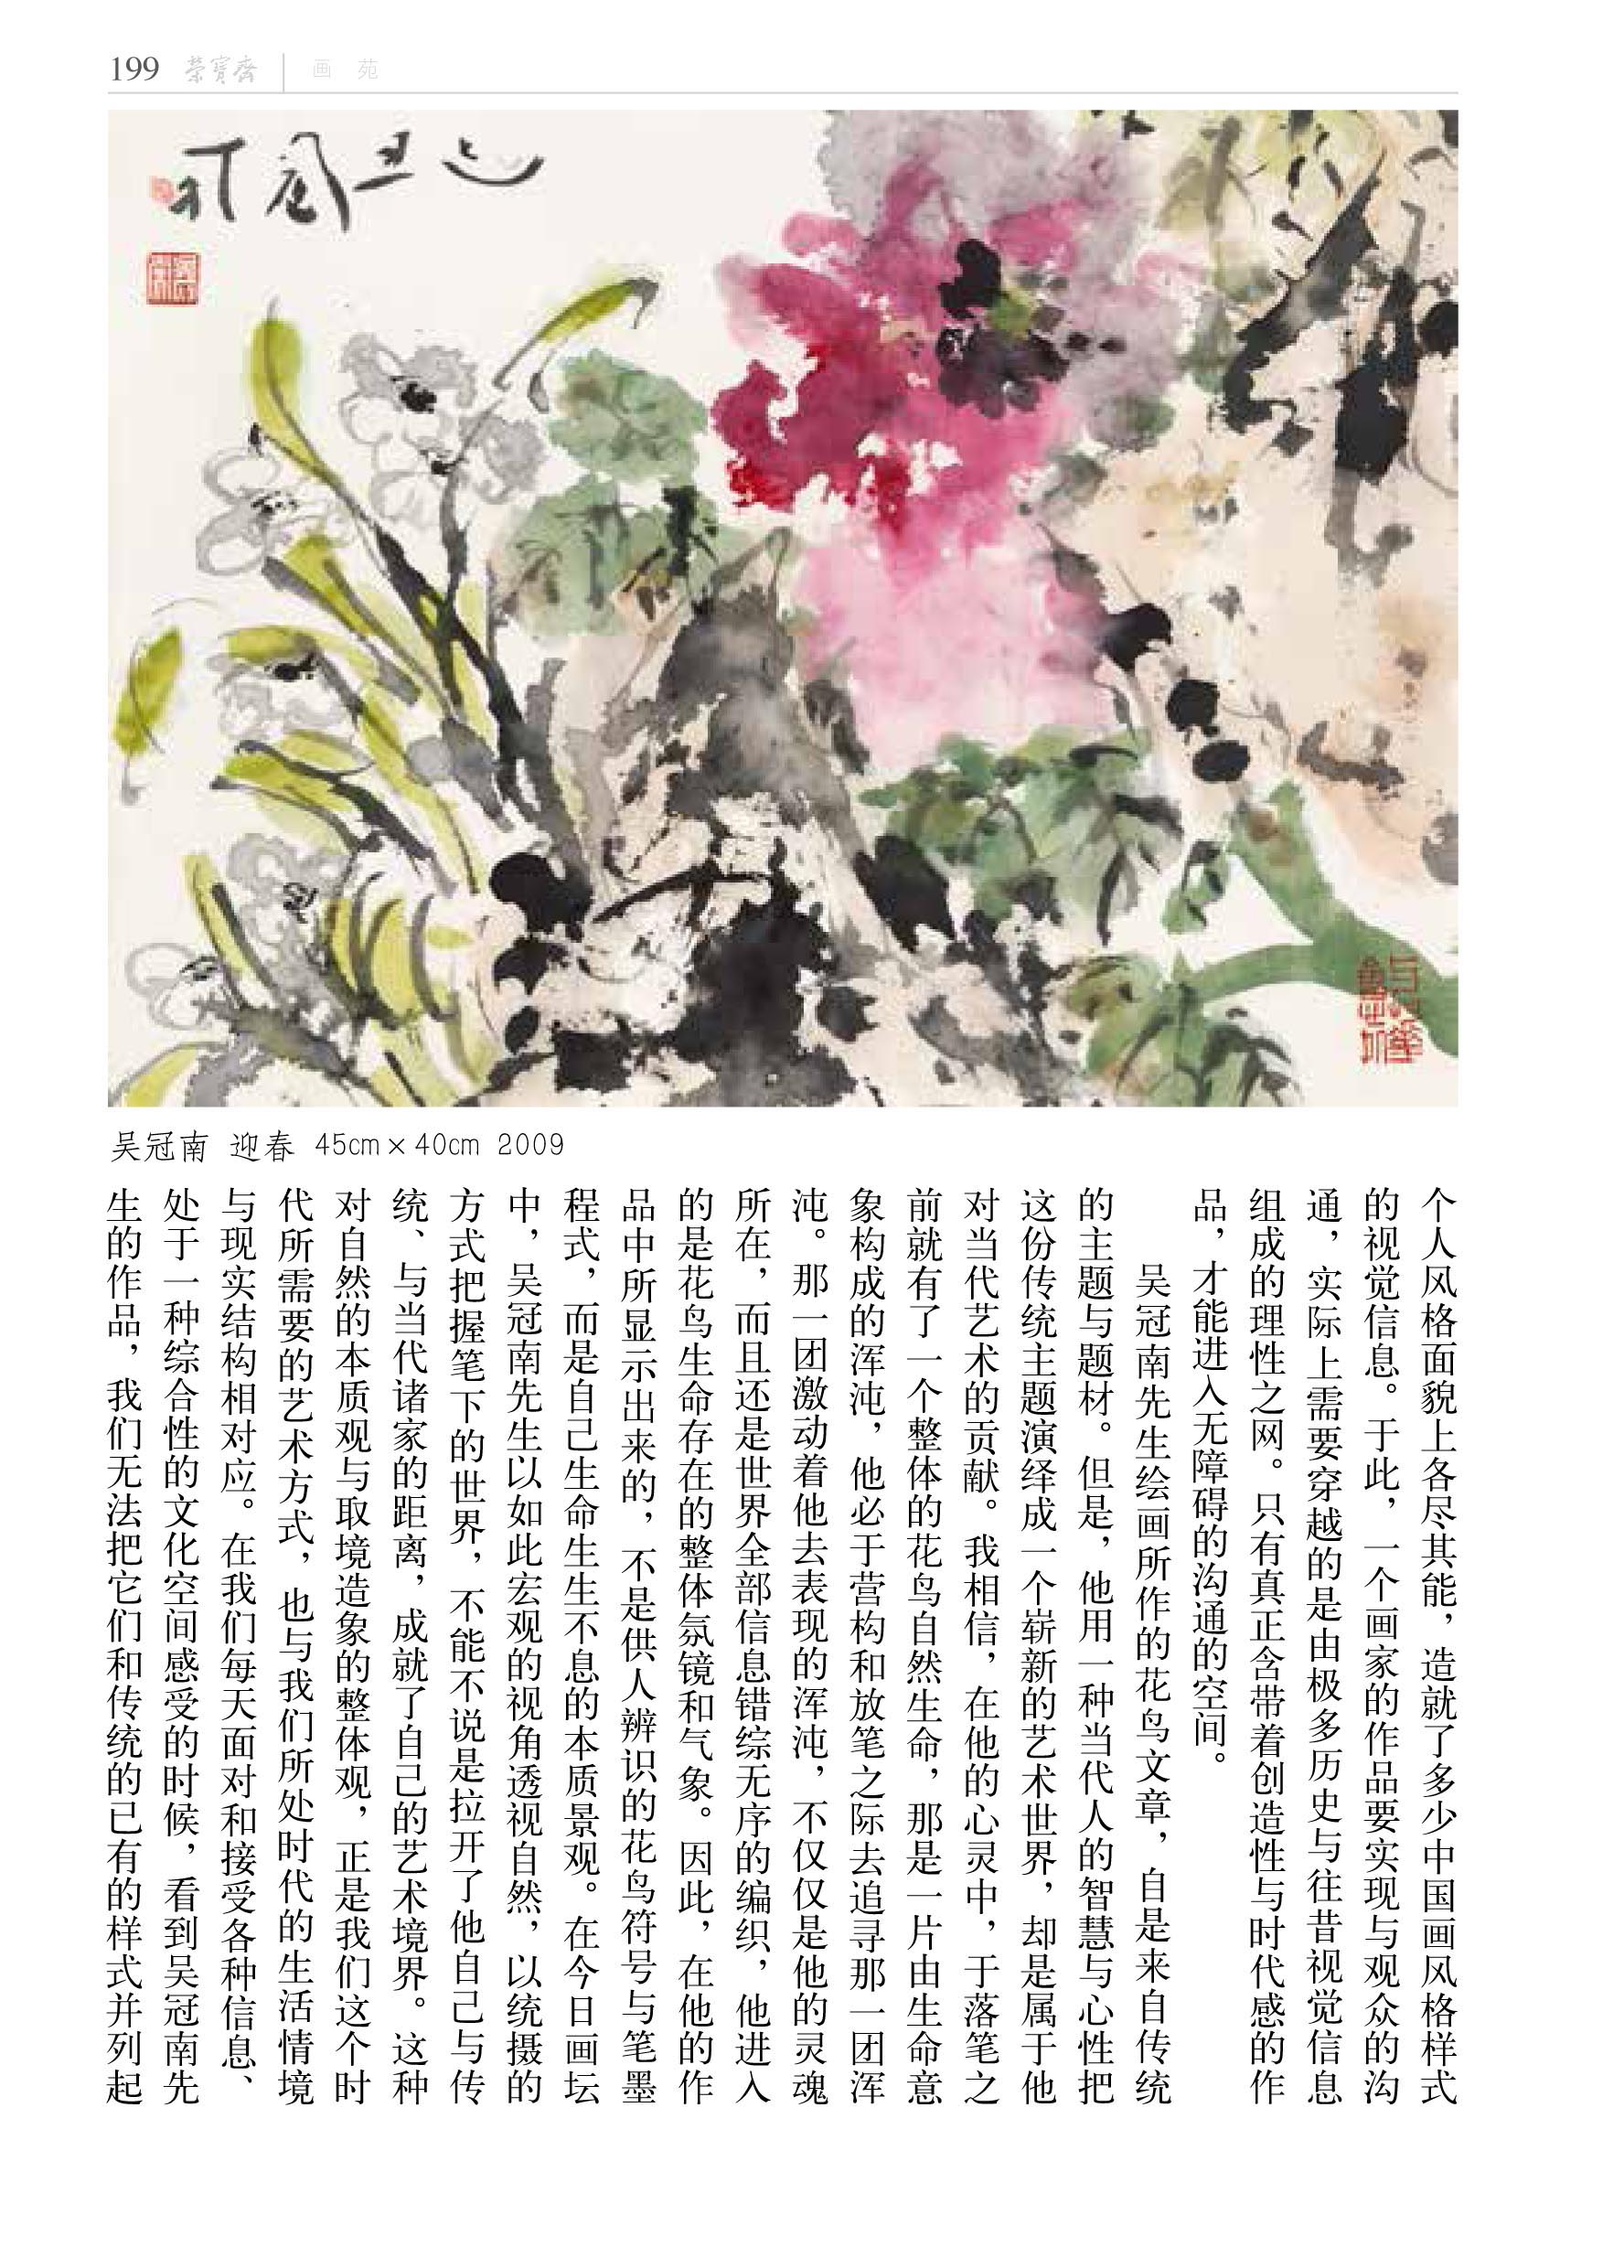 199 荣宝斋 画 苑
吴冠南 迎春 45cm×40cm 2009
个人风格面貌上各尽其能，造就了多少中国画风格样式
的视觉信息。于此，一个画家的作品要实现与观众的沟
通，实际上需要穿越的是由极多历史与往昔视觉信息
组成的理性之网。只有真正含带着创造性与时代感的作
品，才能进入无障碍的沟通的空间。
吴冠南先生绘画所作的花鸟文章，自是来自传统
的主题与题材。但是，他用一种当代人的智慧与心性把
这份传统主题演绎成一个崭新的艺术世界，却是属于他
对当代艺术的贡献。我相信，在他的心灵中，于落笔之
前就有了一个整体的花鸟自然生命，那是一片由生命意
象构成的浑沌，他必于营构和放笔之际去追寻那一团浑
沌。那一团激动着他去表现的浑沌，不仅仅是他的灵魂
所在，而且还是世界全部信息错综无序的编织，他进入
的是花鸟生命存在的整体氛镜和气象。因此，在他的作
品中所显示出来的，不是供人辨识的花鸟符号与笔墨
程式，而是自己生命生生不息的本质景观。在今日画坛
中，吴冠南先生以如此宏观的视角透视自然，以统摄的
方式把握笔下的世界，不能不说是拉开了他自己与传
统、与当代诸家的距离，成就了自己的艺术境界。这种
对自然的本质观与取境造象的整体观，正是我们这个时
代所需要的艺术方式，也与我们所处时代的生活情境
与现实结构相对应。在我们每天面对和接受各种信息、
处于一种综合性的文化空间感受的时候，看到吴冠南先
生的作品，我们无法把它们和传统的已有的样式并列起